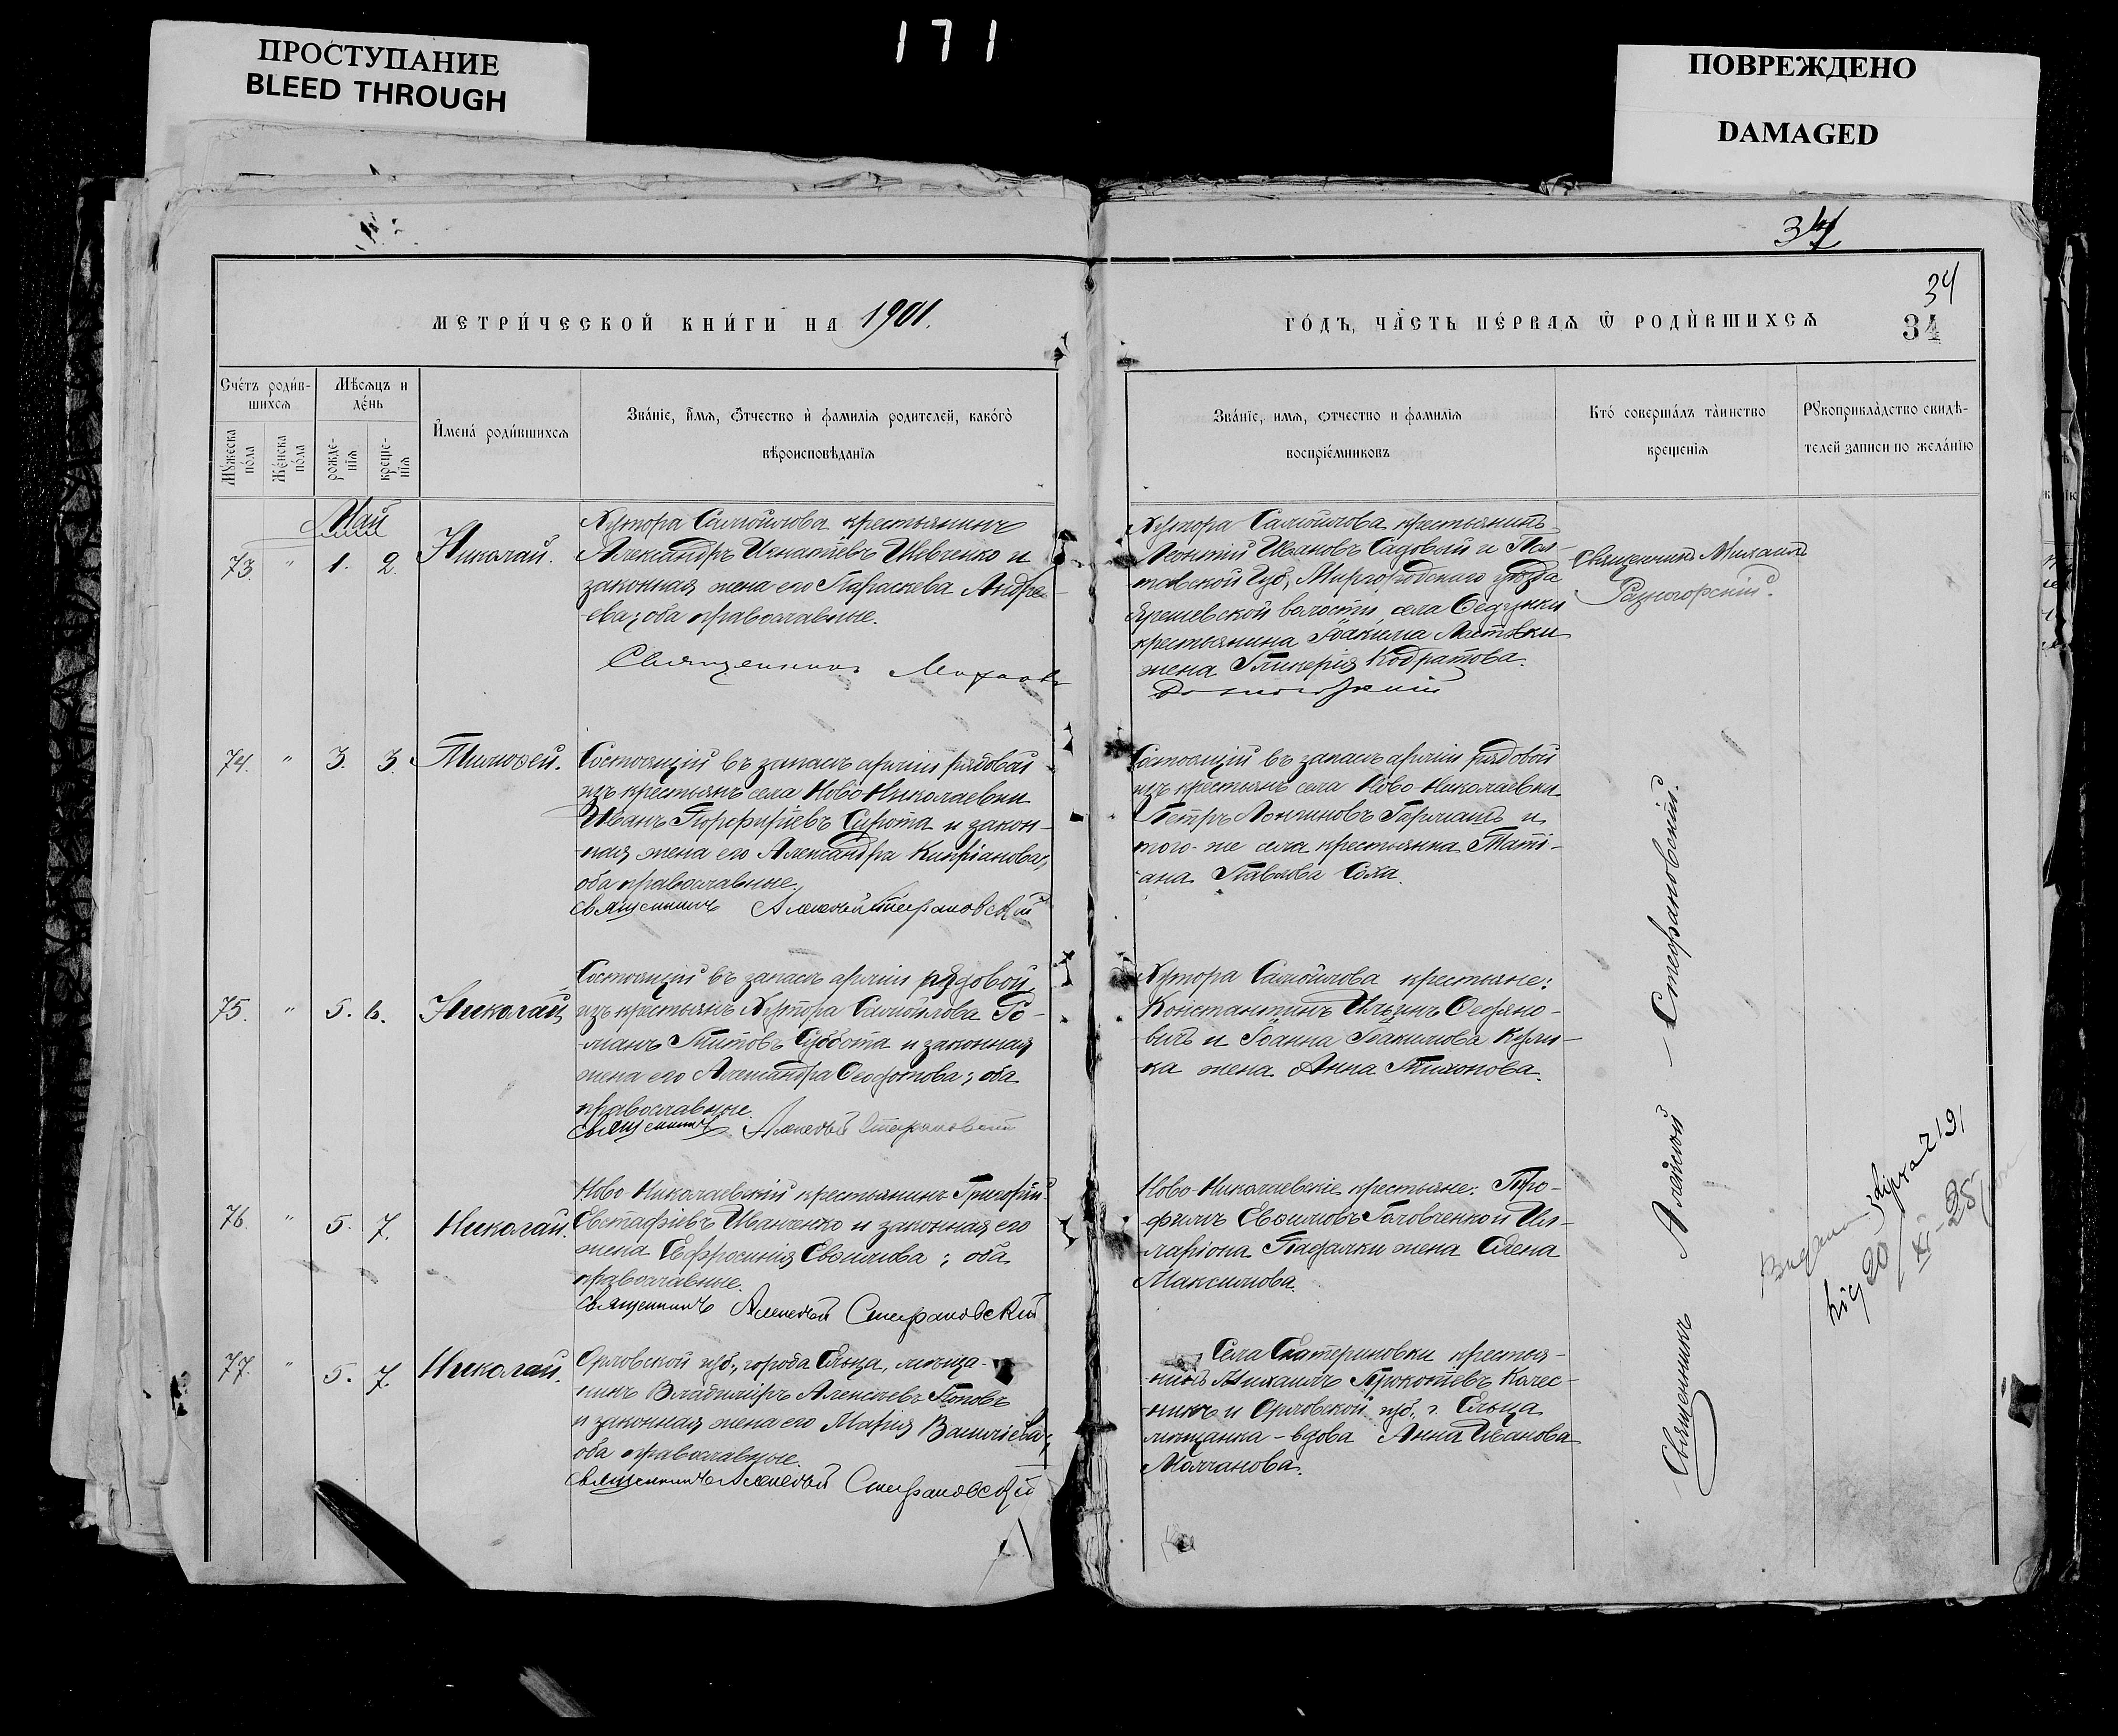 171
ПРОСТУПАНИЕ
BLEED THROUGH
ПОВРЕЖДЕНО
DAMAGED
34
34
МЕТРИ́ЧЕСКОЙ КНИ́ГИ НА 1901.
ГО́ДЪ, ЧА́СТЬ ПЕ́РВАѦ Ѿ РОДИ́ВШИХСѦ
34
Счéтъ роди́в-
шихсѧ
Мѣсѧцъ и
де́нь
Мꙋ́жеска
по́ла
Же́нска
по́ла
рожде-
нїѧ
креще-
нїѧ
И҆мена́ роди́вшихсѧ
Зва́нїе, и҆́мѧ, ѻ҆́тчество и҆ фами́лїѧ родителей, како́гѡ
вѣроисповѣ́данїѧ
Зва́нїе, имѧ, ѻтчество и фами́лїѧ
воспрїе́мниковъ
Кто́ соверша́лъ та́инство
креще́нїѧ
Рꙋкоприкла́дство свидѣ́-
телей записи по жела́нїю
Май
73. " 1. 2. Николай.
Хутора Самойлова крестьянинъ
Александръ Игнатіевъ Шевченко и
законная жена его Параскева Андре-
ева; оба православные.
Священникъ Михаилъ
Хутора Самойлова крестьянинъ
Леонтій Ивановъ Садовый и Пол-
тавской губ., Миргородскаго уѣзда
волости, села
крестьянина Іоакима
жена Гликерія Кодратова.
Разногорскій
Священникъ Михаилъ
Разногорскій.
74. " 3. 3. Тимоѳей.
Состоящій въ запасѣ арміи рядовой
изъ крестьянъ села Ново-Николаевки
Иванъ Порфиріевъ Сирота и закон-
ная жена его Александра Кипріанова;
оба православные.
Священникъ Алексѣй Стефановскій
Состоящій въ запасѣ арміи рядовой
изъ крестьянъ села Ново-Николаевки
Петръ Логгиновъ и
того-же села крестьянка Таті-
ана Павлова
75. " 5. 6. Николай
Состоящій въ запасѣ арміи рядовой
изъ крестьянъ Хутора Самойлова Ро-
манъ Титовъ Суббота и законная
жена его Александра Ѳеофотова; оба
православные.
Священникъ Алексѣй Стефановскій
Хутора Самойлова крестьяне:
Константинъ Ильинъ
и Іоанна Іоакимова
жена Анна Тихонова.
76. " 5. 7. Николай.
Ново-Николаевскій крестьянинъ Григорій
Евстафіевъ Иванченко и законная его
жена Евфросинія Евѳимова; оба
православные.
Священникъ Алексѣй Стефановскій
Ново-Николаевскіе крестьяне: Тро-
фимъ Евѳимовъ Головченко и Ил-
ларіона Падалки жена Елена
Максимова.
77. " 5. 7. Николай.
Орловской губ., города Ельца, мѣща-
нинъ Владиміръ Алексѣевъ Поповъ
и законная жена его Марія Василіева;
оба православные.
Священникъ Алексѣй Стефановскій
Села Екатериновки крестья-
нинъ Михаилъ Прокопіевъ Колес-
никъ и Орловской губ. г. Ельца
мѣщанка-вдова Анна Иванова
Молчанова.
Священникъ Алексѣй Стефановскій.